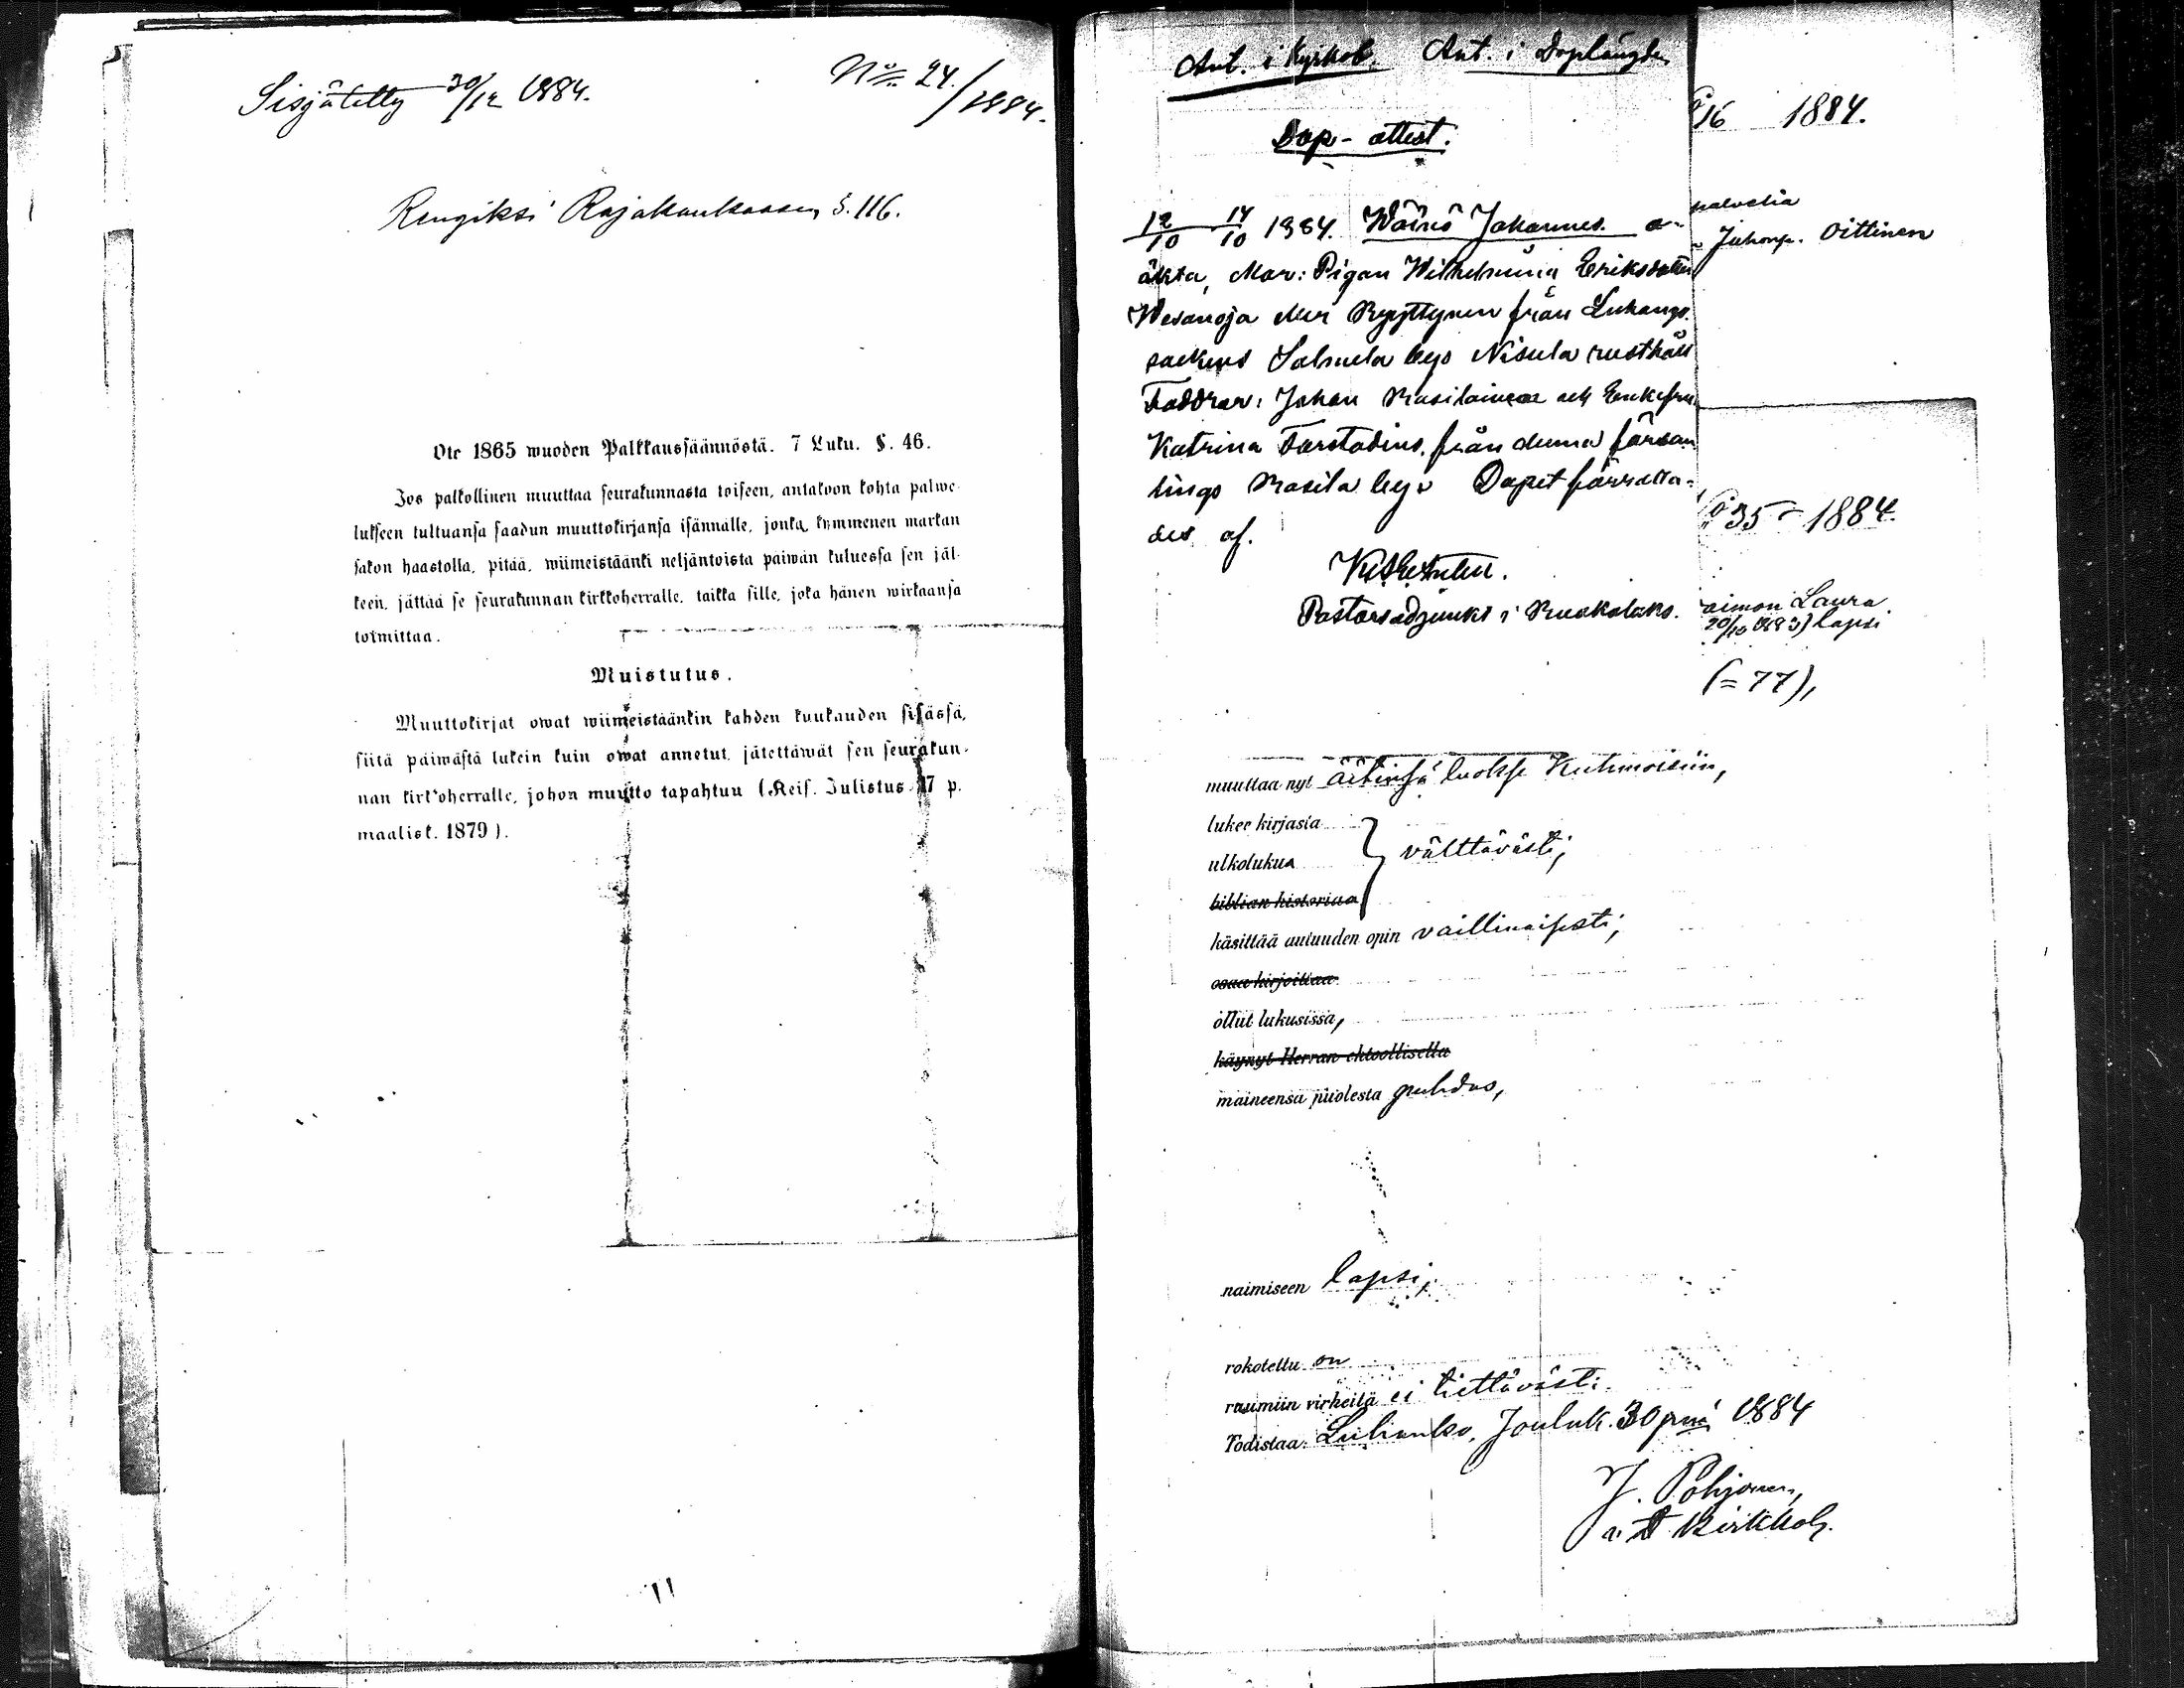 Sisjätetty 30/12 1884.
No 24/1884.
Rengiksi Rajakankaasen S. 116.
Ote 1865 wuoden Palkkaussäännöstä. 7 Luku. §. 46.
Jos palkollinen muuttaa seurakunnasta toiseen, antakoon kohta palwe-
lukseen tultuansa saadun muuttokirjansa isännälle, jonka, kymmenen markan
sakon haastolla, pitää, wiimeistäänki neljäntoista päiwän kuluessa sen jäl-
keen, jättää se seurakunnan kirkkoherralle, taikka sille, joka hänen wirkaansa
toimittaa.
Muistutus.
Muuttokirjat owat wiimeistäänkin kahden kuukauden sisässä,
siitä päiwästä lukein kuin owat annetut, jätettäwät sen seurakun-
nan kirkkoherralle, johon muutto tapahtuu (Keis. Julistus 17 p.
maalisk. 1879).
Ant. i Kyrkob. Ant. i Doplängden
Dop-attest.
12/10 14/10 1884. Wäinö Johannes. o-
äkta, Mor: Pigan Wilhelmina Eriksdotter
Wesanoja eller Ryyttynen från Luhango
sockens Salmela bys Nisula rusthåll
Faddrar: Johan Rasilainen och Enkefru
Katrina Forstadius, från denna försam
lings Rasila by. Dopet förrätta-
des af.
Pastorsadjunkt i Ruokolaks.
16 1884.
palvelia
Juhonp. Oittinen
35 1884.
Laura
20/10 1883) lapsi
(= 77),
muuttaa nyt äitinsä luokse Kuhmoisiin,
lukee kirjasta
ulkolukua } välttävästi;
biblian historiaa
käsittää autuuden opin vaillinaisesti;
osaa kirjoittaa
ollut lukusissa,
käynyt Herran ehtoollisella
maineensa puolesta puhdas,
naimiseen lapsi;
rokotettu on
ruumiin virheitä ei tiettävästi.
Todistaa: Luhanko, Jouluk. 30 pnä 1884
J. Pohjonen,
Kirkkoh.